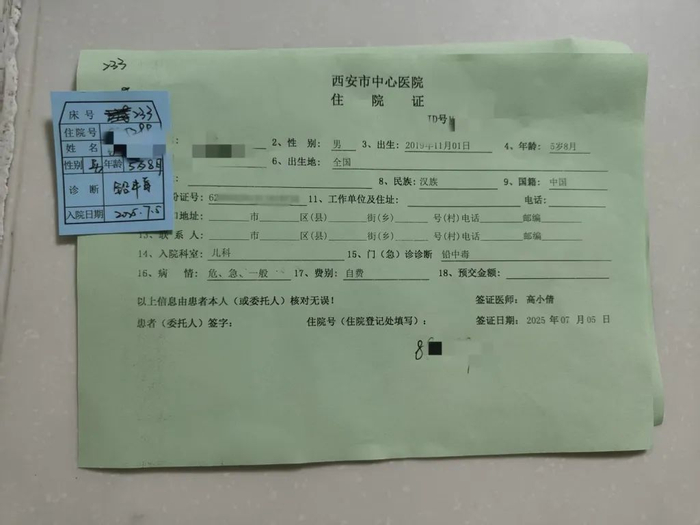 233
西安市中心医院
住 院 证
ID号
2、性 别: 男 3、出生: 2019年11月01日 4、年龄: 5岁8月
6、出生地: 全国
8、民族: 汉族 9、国籍: 中国
份证号: 62 11、工作单位及住址: 电话:
地址: 市 区(县) 街(乡) 号(村)电话 邮编
13、联 系 人: 市 区(县) 街(乡) 号(村)电话 邮编
14、入院科室: 儿科 15、门(急)诊诊断 铅中毒
16、病 情: 危、急、一般 17、费别: 自费 18、预交金额:
以上信息由患者本人(或委托人)核对无误! 签证医师: 高小倩
患者(委托人)签字: 住院号(住院登记处填写): 签证日期: 2025年07月05日
8
床号 233
住院号
姓名
性别 男 年龄 5岁8月
诊断 铅中毒
入院日期 2025.7.5